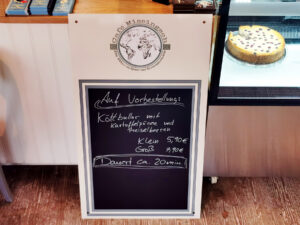 Auf Vorbestellung:
Köttbullar mit
Kartoffelpüree und
Preiselbeeren
Klein 5,90€
Groß 7,90€
Dauert ca. 20min!